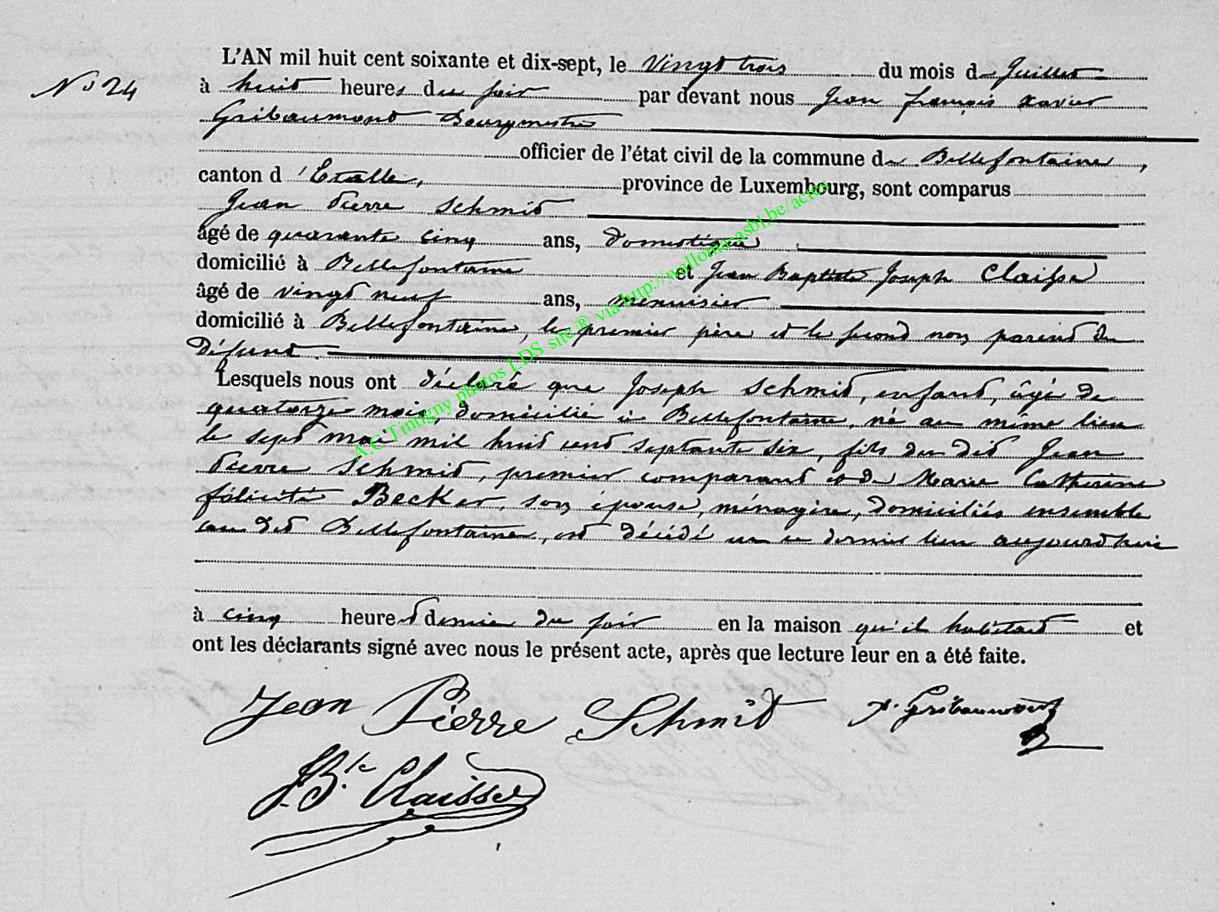 L'AN mil huit cent soixante et dix-sept, le Vingt trois du mois de Juillet
No 24
à huit heures du soir par devant nous Jean françois xavier
Gribaumont Bourgmestre
officier de l'état civil de la commune de Bellefontaine,
canton d'Etalle, province de Luxembourg, sont comparus
Jean Pierre Schmit
âgé de quarante cinq ans, domestique
domicilié à Bellefontaine et Jean Baptiste Joseph Claisse
âgé de vingt neuf ans, menuisier
domicilié à Bellefontaine, le premier père et le second non parent du
Défunt.
Lesquels nous ont déclaré que Joseph Schmit, enfant, âgé de
quatorze mois, domicilié à Bellefontaine, né au même lieu
le sept mai mil huit cent septante six, fils du dit Jean
Pierre Schmit, premier comparant et de Marie Catherine
félicité Becker, son épouse, ménagère, domiciliés ensemble
au dit Bellefontaine, est décédé en ce dernier lieu aujourd'hui
à cinq heures demie du soir en la maison qu'il habitait et
ont les déclarants signé avec nous le présent acte, après que lecture leur en a été faite.
Jean Pierre Schmit
x. Gribaumont
J. Bte Claisse
A.G. Tintigny photos LDS site ® via http://wallonia-asbl.be/actes